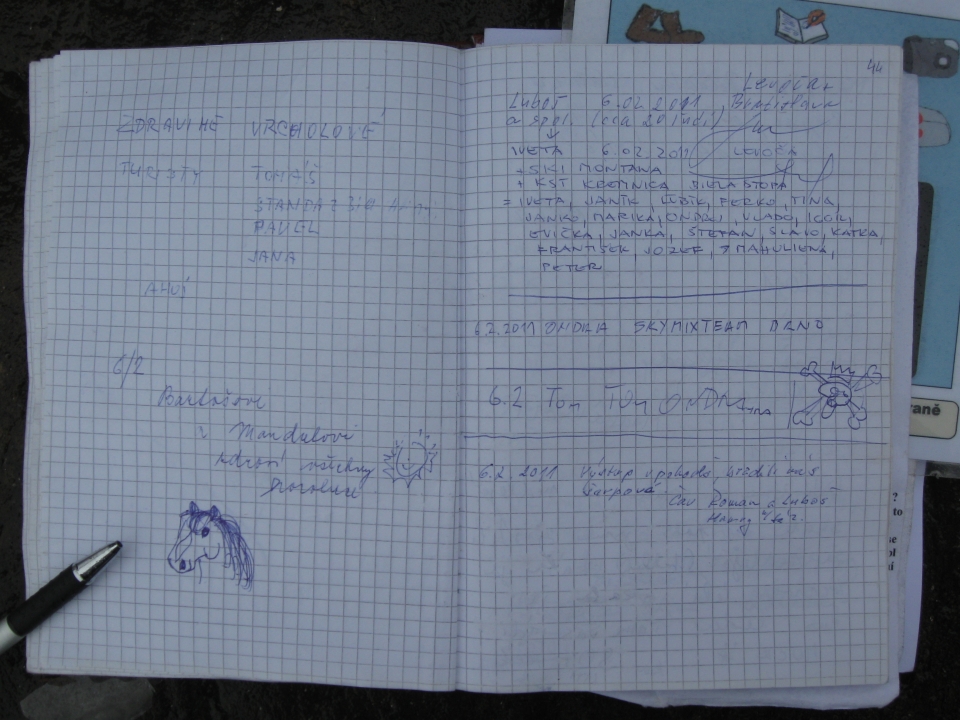 ZDRAVIHE VRCHOLOVÉ
TURISTY TOMÁŠ
STANDA
PAVEL
JANA
AHOJ
6/2
Bartošovi
Mandulovi
zdraví všechny
44
Levoča +
Luboš 6.02.2011 Bratislava
a spol. (cca 20 ľudí)
IVETA 6.02.2011 LEVOČA
+ SKI MONTANA
+ KST KREMNICA BIELA STOPA
= IVETA, JANÍK, ĽUBÍK, FERKO, TINA,
JANKO, MARIKA, ONDREJ, VLADO, IGOR,
EVIČKA, JANKA, ŠTEFAN, SLAVO, KATKA,
FRANTIŠEK, JOZEF, MAHULIENA,
PETER
6.2.2011 ONDRA SKYMIXTEAM BRNO
6.2 Tom Tom
6.2. 2011 Výstup v pohodě,
Čau Roman a Luboš
raně
? 
to